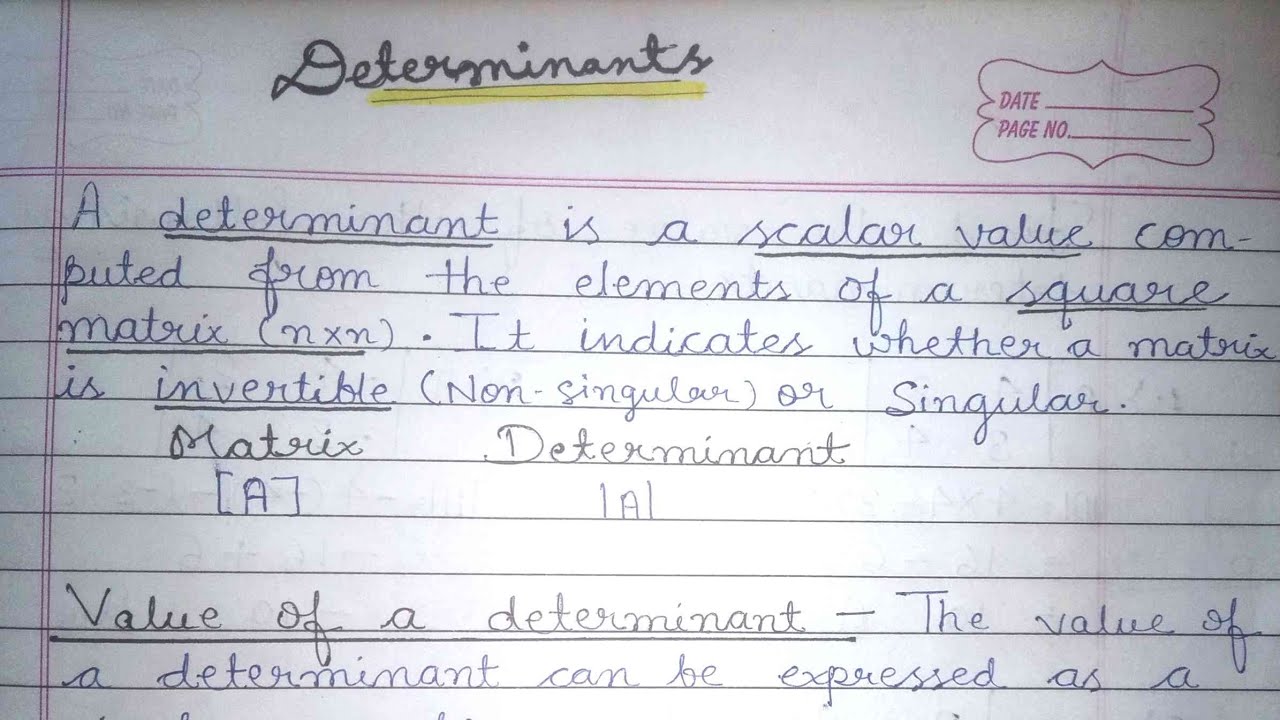 Determinants
DATE
PAGE NO.
A determinant is a scalar value com-
puted from the elements of a square
matrix (n×n). It indicates whether a matrix
is invertible (Non-singular) or Singular.
Matrix Determinant
[A] |A|
Value of a determinant – The value of
a determinant can be expressed as a